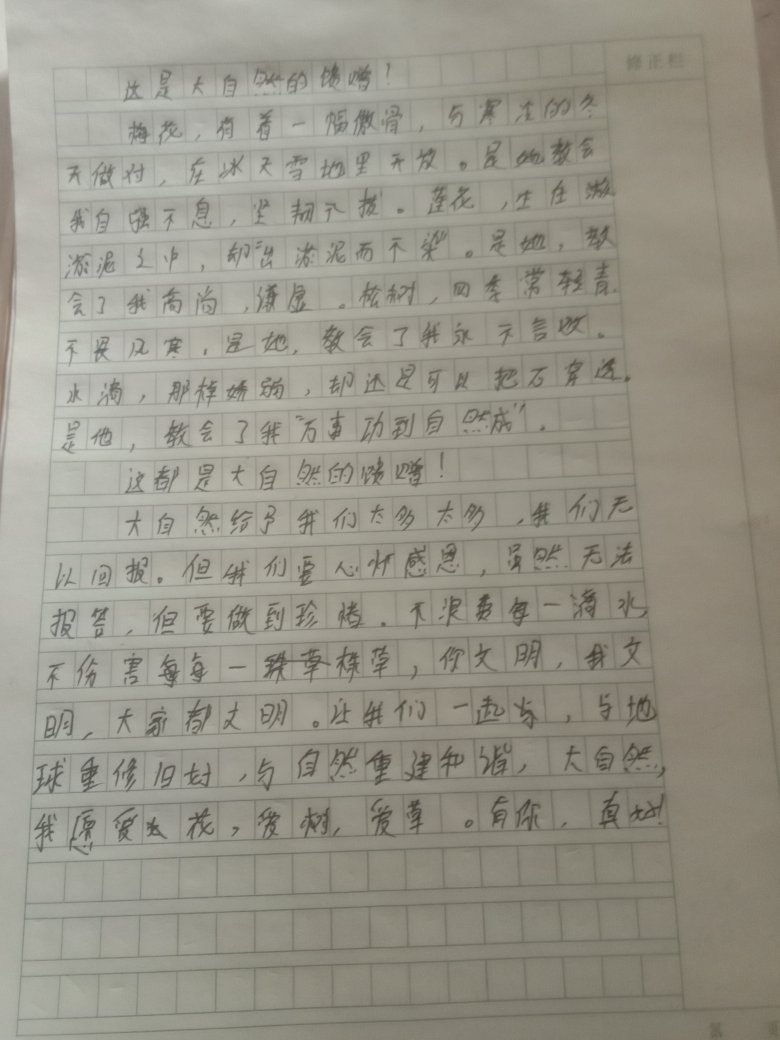 修正栏
这是大自然的馈赠!
梅花，有着一幅傲骨，与寒冷的冬
天做对，在冰天雪地里开放。是她教会
我自强不息，坚韧不拔。莲花，生在淤
淤泥之中，却"出淤泥而不染"。是她，教
会了我高尚，谦虚。松树，四季常轻青，
不畏风寒，是她，教会了我永不言败。
水滴，那样娇弱，却还是可以把石穿透。
是他，教会了我"万事功到自然成"。
这都是大自然的馈赠!
大自然给予我们太多太多，我们无
以回报。但我们要心怀感恩，虽然无法
报答，但要做到珍惜。不浪费每一滴水，
不伤害每每一株草，你文明，我文
明，大家都文明。让我们一起与，与地
球重修旧好，与自然重建和谐，大自然，
我愿爱花，爱树，爱草。有你，真好!
第 页